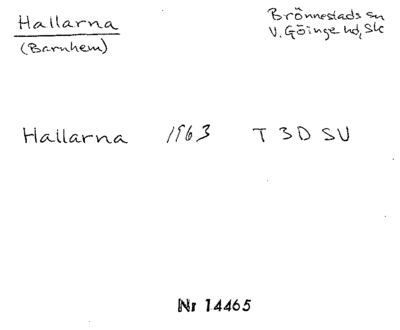 Hallarna
(Barnhem)
Brönnestads sn
V. Göinge hd, Sk
Hallarna 1963 T 3D SV
Nr 14465